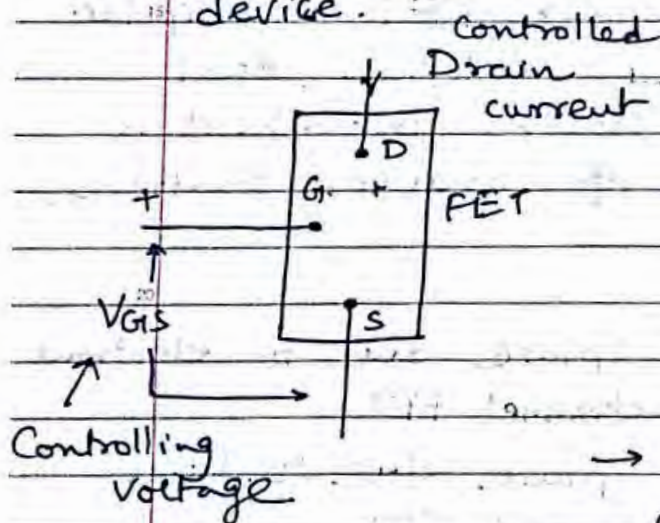 device.
Controlled
Drain
current
D
G. +
FET
+
VGS
S
Controlling
Voltage
→